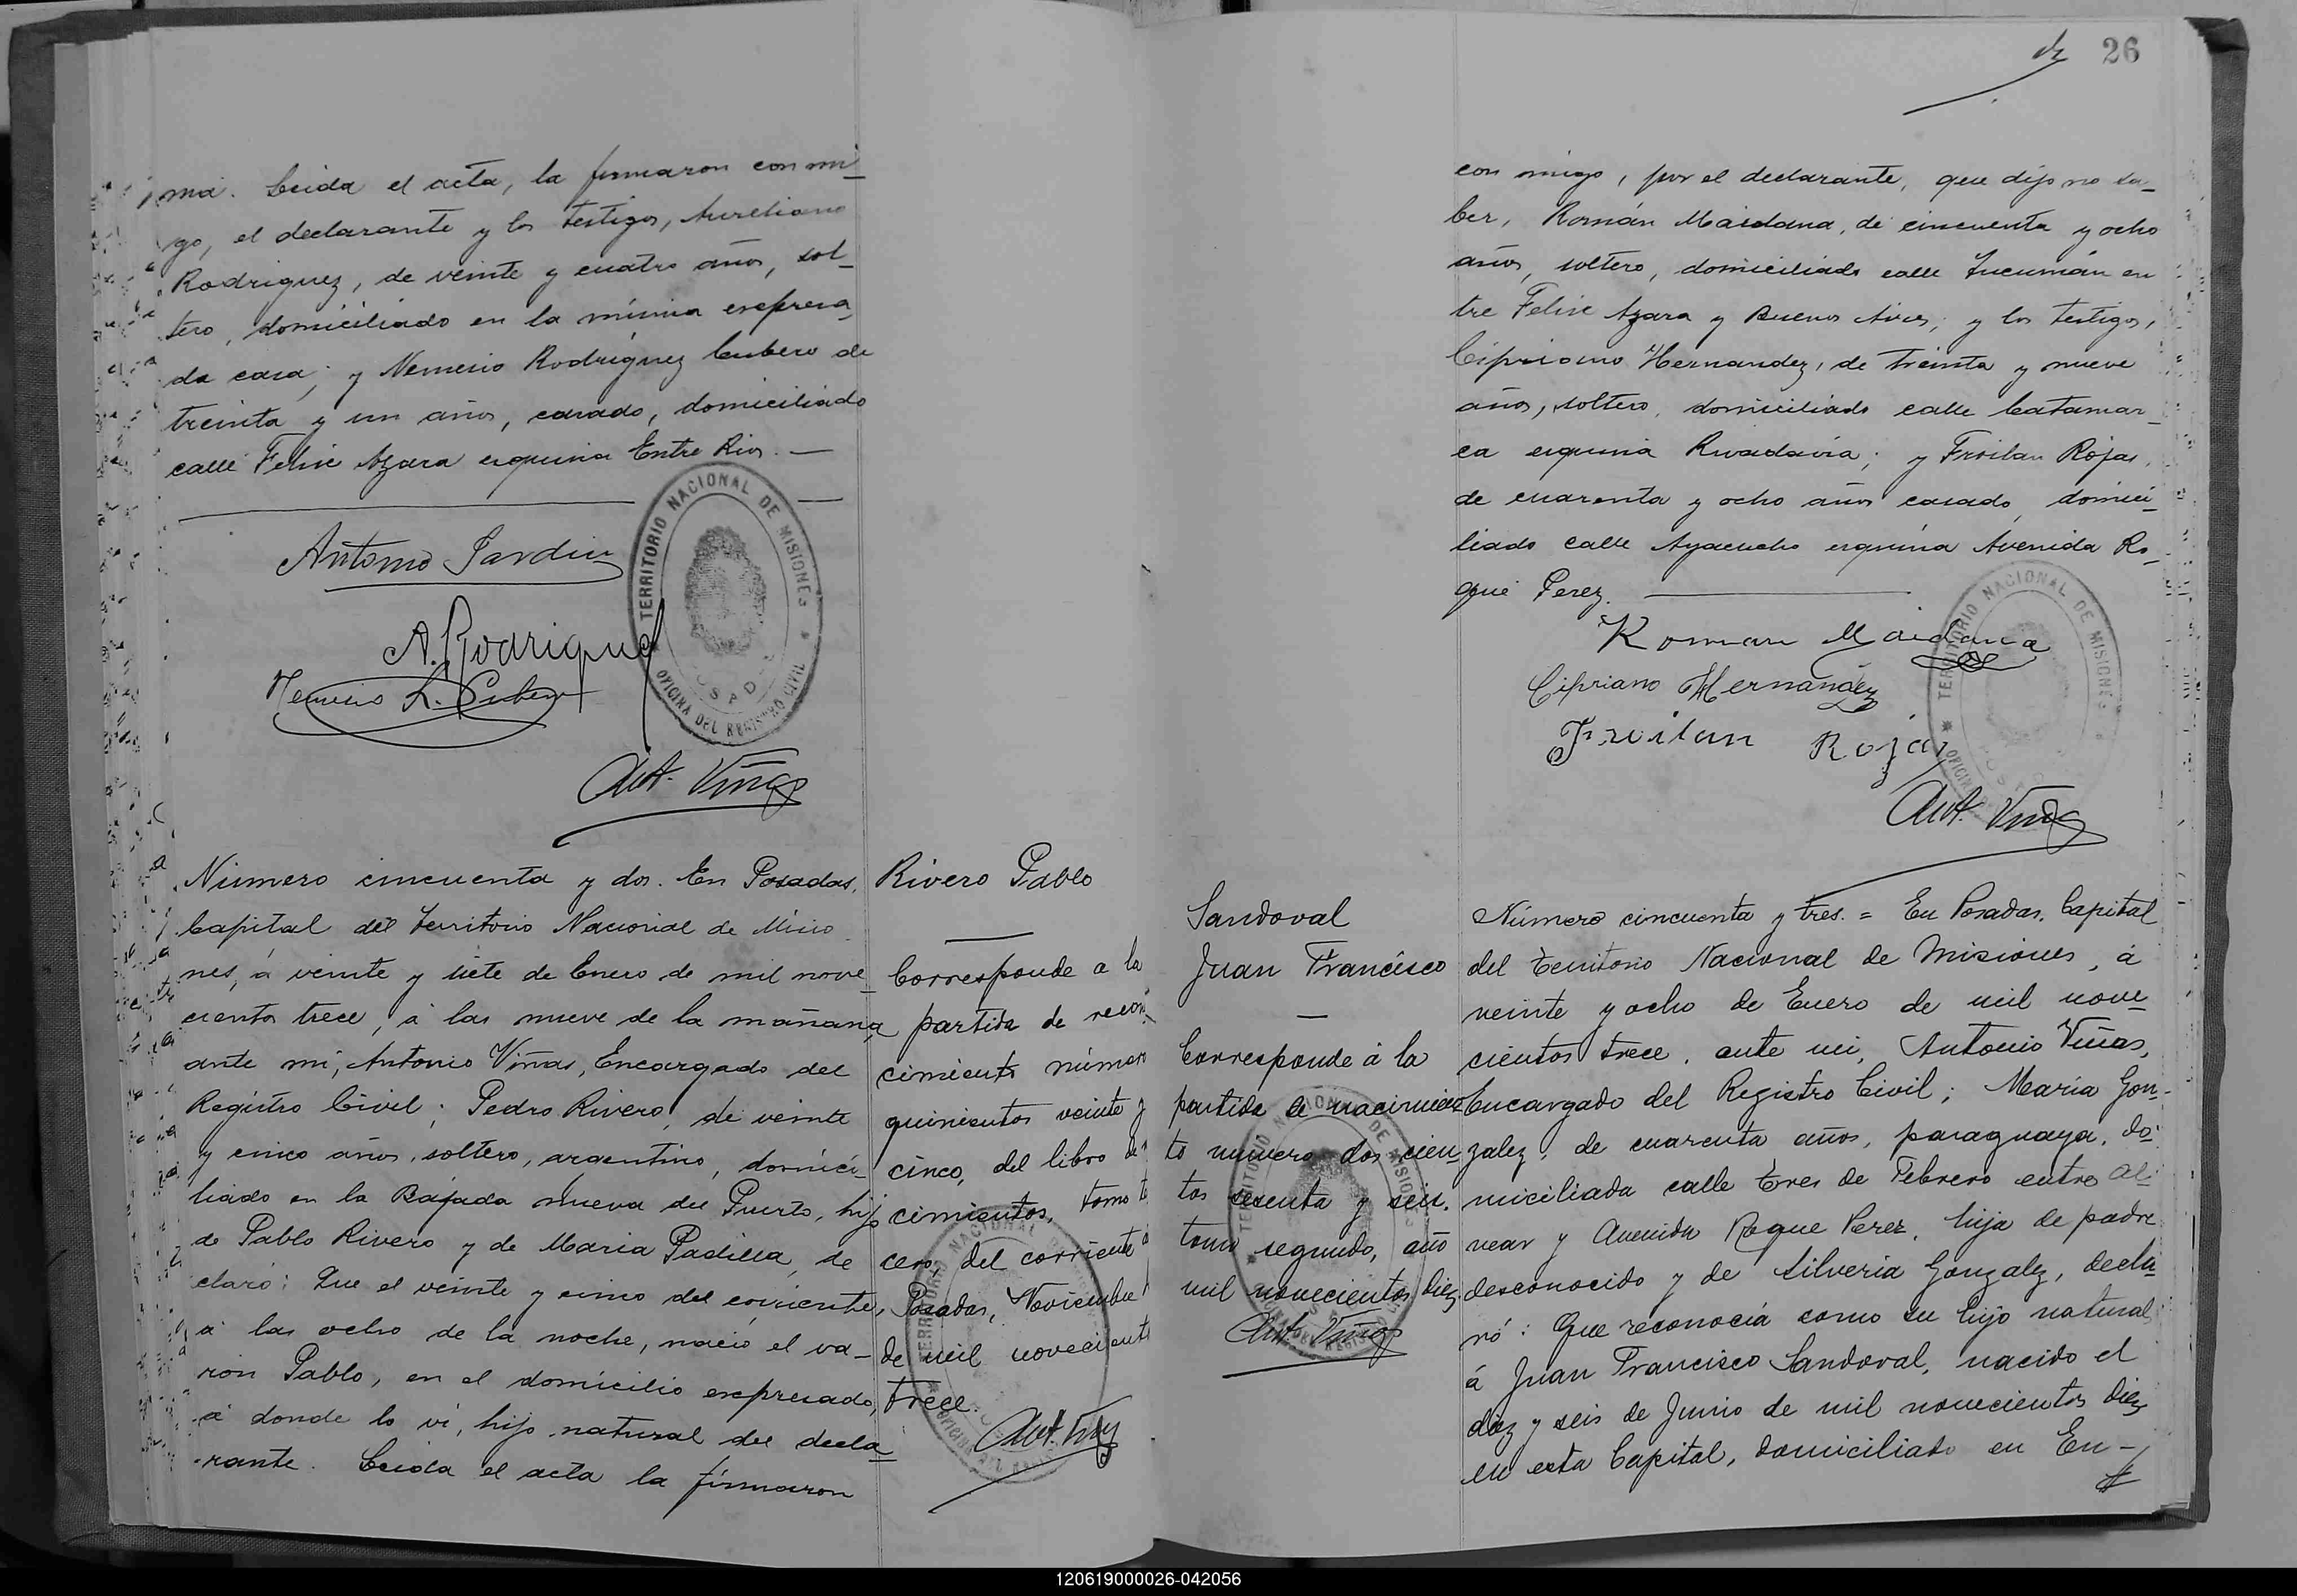 ma. Leida el acta, la firmaron con mi_
go, el declarante y los testigos, Aureliano
Rodriguez, de veinte y cuatro años, sol_
tero, domiciliado en la misma expresa_
da casa; y Nemesio Rodríguez Cubero de
treinta y un años, casado, domiciliado
calle Felix Azara esquina Entre Rios. —
Antonio Jardin
A. Rodriguez
Nemesio R. Cubero
Ant. Viñas
TERRITORIO NACIONAL DE MISIONES
OFICINA DEL REGISTRO CIVIL
Número cincuenta y dos. En Posadas,
Capital del Territorio Nacional de Misio_
nes, á veinte y siete de Enero de mil nove_
cientos trece, á las nueve de la mañana,
ante mí, Antonio Viñas, Encargado del
Registro Civil; Pedro Rivero, de veinte
y cinco años, soltero, argentino, domici_
liado en la Bajada nueva del Puerto, hijo
de Pablo Rivero y de Maria Padilla, de
claró: Que el veinte y cinco del corriente,
á las ocho de la noche, nació el va_
rón Pablo, en el domicilio expresado,
á donde lo ví, hijo natural del decla_
rante. Leida el acta la firmaron
Rivero Pablo
Corresponde a la
partida de recono_
cimiento número
quinientos veinte y
cinco, del libro de
cimientos, tomo
cero, del corriente
Posadas, Noviembre
de mil novecientos
trece.
Ant. Viñas
26
con migo, por el declarante, que dijo no sa_
ber, Román Maidana, de cincuenta y ocho
años, soltero, domiciliado calle Tucumán en
tre Felix Azara y Buenos Aires; y los testigos,
Cipriano Hernandez, de treinta y nueve
años, soltero, domiciliado calle Catamar_
ca esquina Rivadavia; y Froilan Rojas,
de cuarenta y ocho años casado, domici_
liado calle Ayacucho esquina Avenida Ro_
que Perez.
Roman Maidana
Cipriano Hernández
Froilan Rojas
Ant. Viñas
TERRITORIO NACIONAL DE MISIONES
Sandoval
Juan Francisco
Corresponde á la
partida de nacimien
to numero dos cien_
tos sesenta y seis.
tomo segundo, año
mil novecientos diez.
Ant. Viñas
Número cincuenta y tres. = En Posadas, Capital
del Territorio Nacional de Misiones, á
veinte y ocho de Enero de mil nove_
cientos trece, ante mi, Antonio Viñas,
Encargado del Registro Civil; María Gon-
zalez, de cuarenta años, paraguaya, do_
miciliada calle Tres de Febrero entre Al_
vear y Avenida Roque Perez, hija de padre
desconocido y de Silveria Gonzalez, decla_
ró: Que reconocía como su hijo natural
á Juan Francisco Sandoval, nacido el
diez y seis de Junio de mil novecientos diez
en esta Capital, domiciliado en En-
120619000026-042056